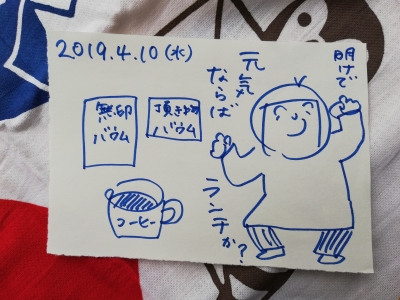 2019.4.10(水)
明けで
元気
ならば
ランチか?
無印
バウム
頂き物
バウム
コーヒー